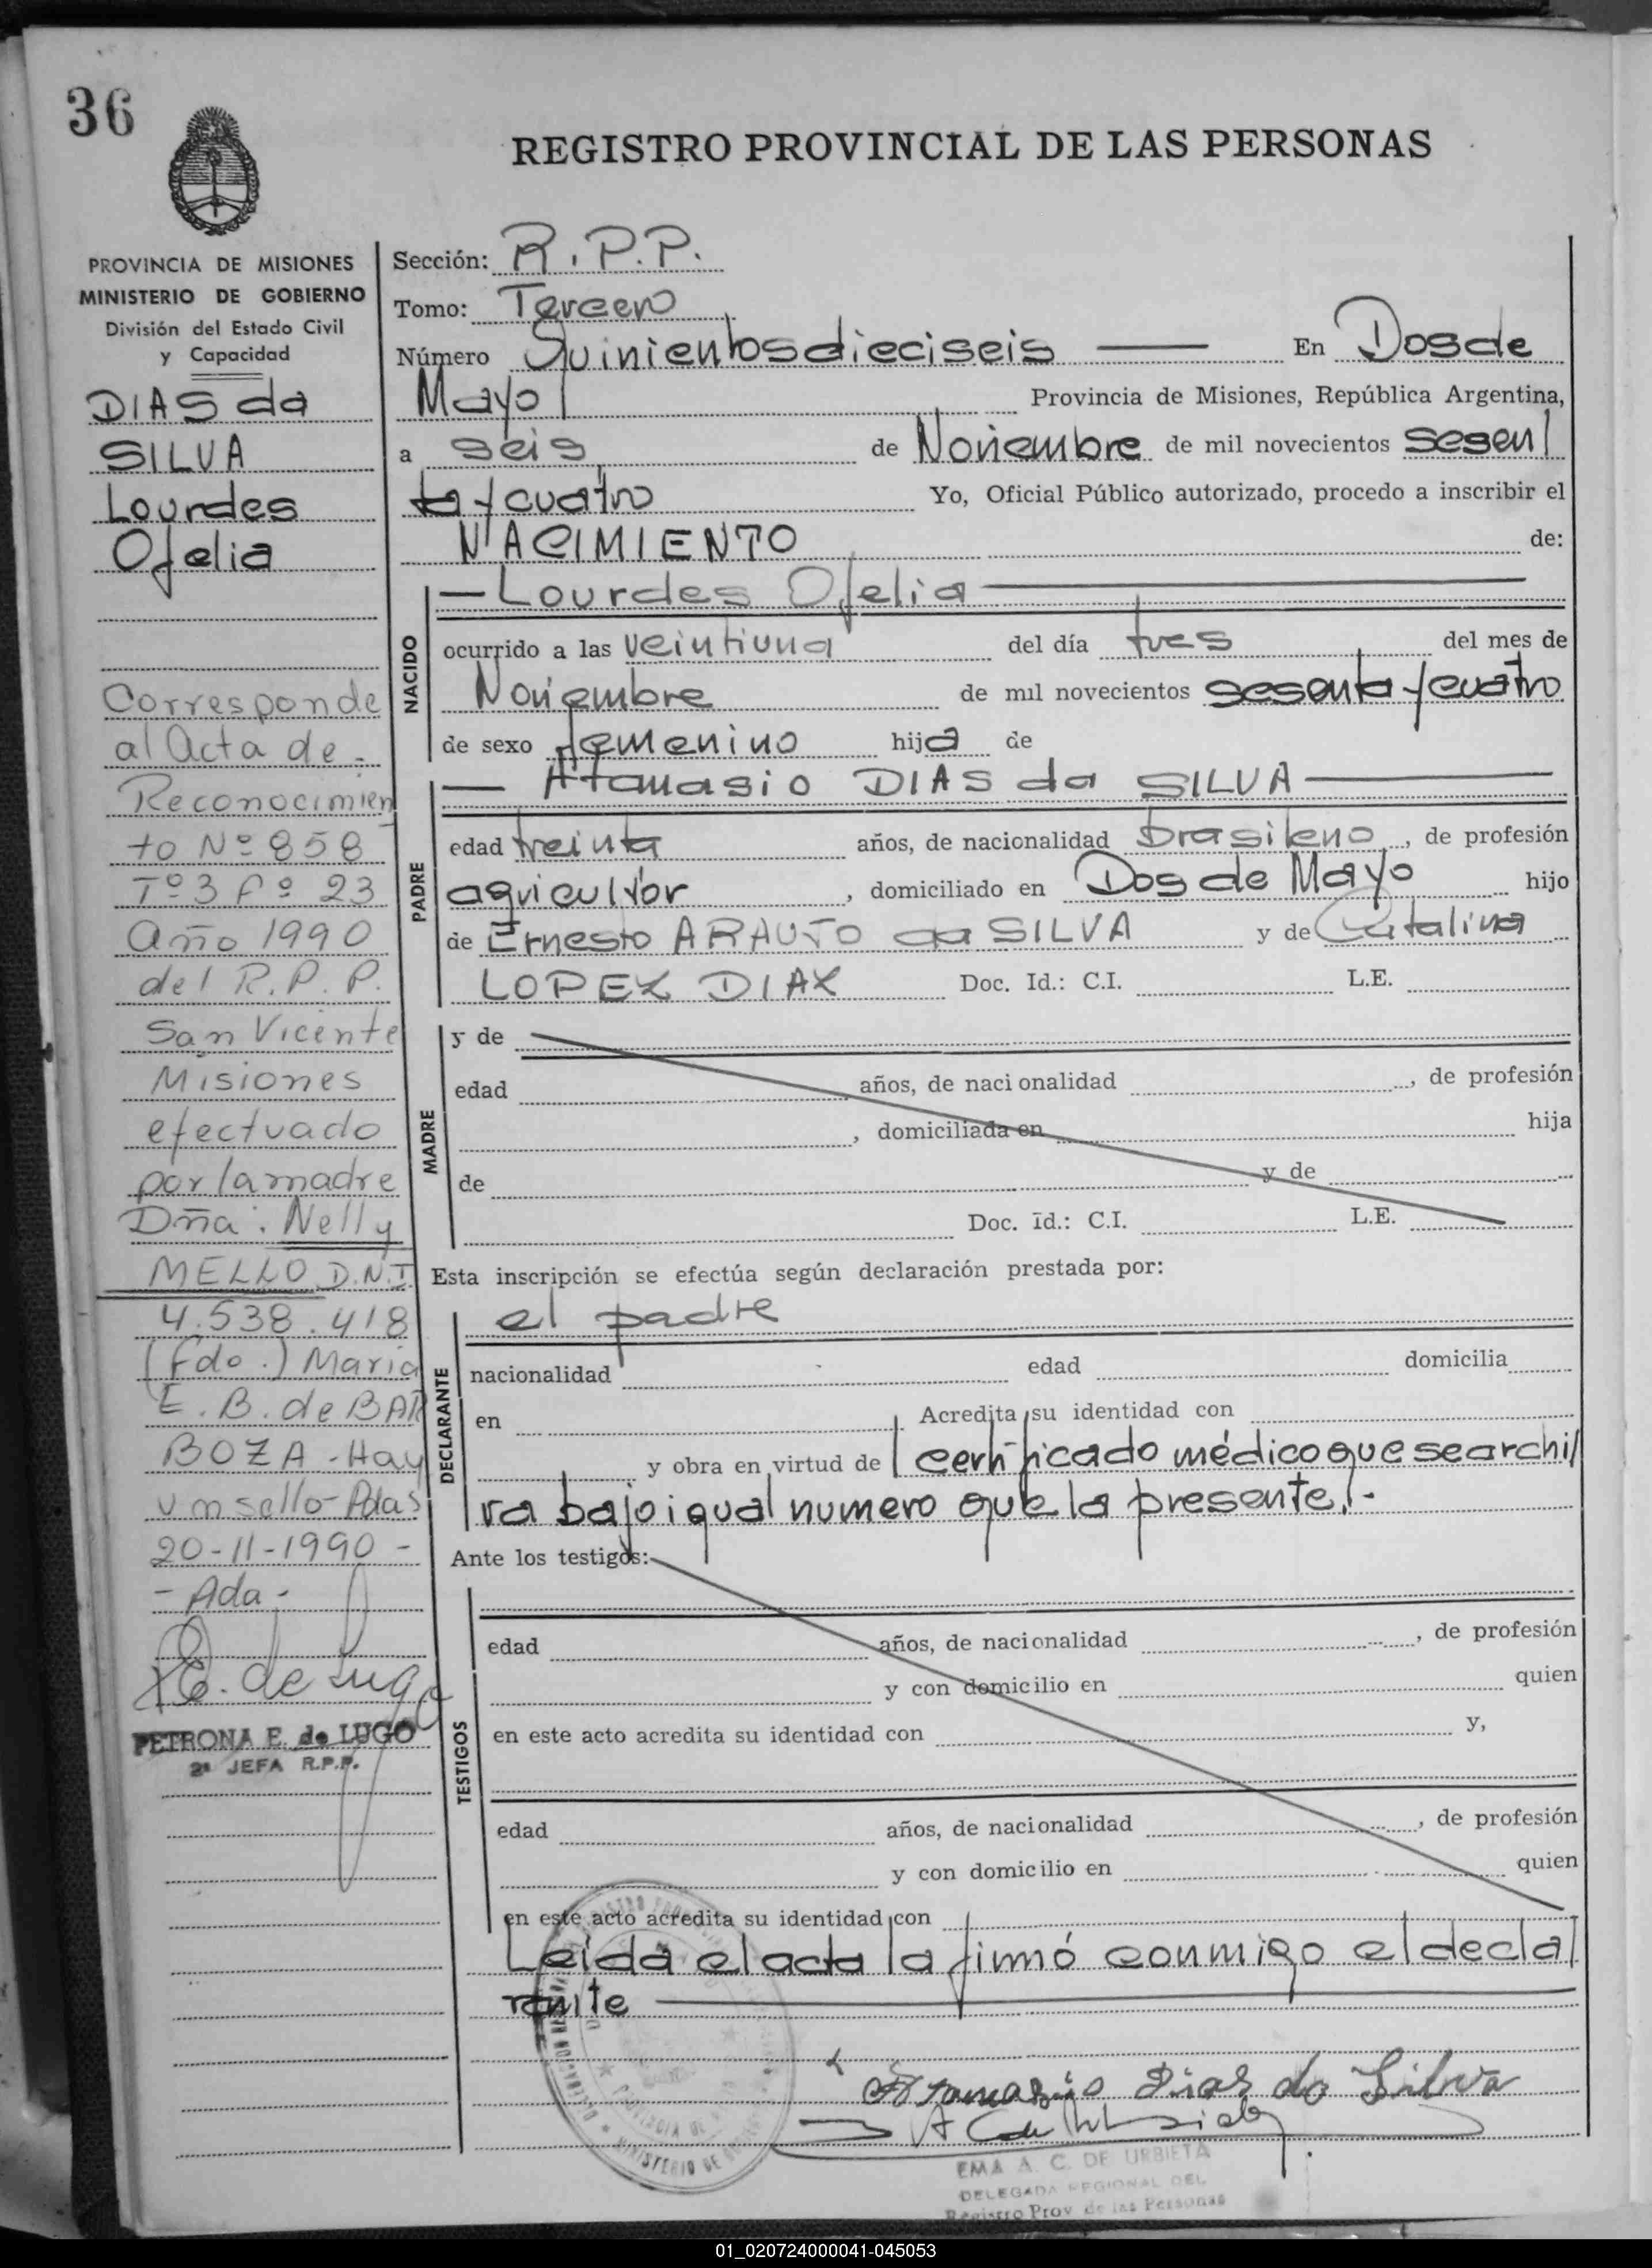 36
REGISTRO PROVINCIAL DE LAS PERSONAS
PROVINCIA DE MISIONES
MINISTERIO DE GOBIERNO
División del Estado Civil
y Capacidad
DIAS da
SILVA
Lourdes
Ofelia
Corresponde
al Acta de
Reconocimien
to Nº 858
Tº 3 Fº 23
año 1990
del R.P.P.
San Vicente
Misiones
efectuado
por la madre
Dña: Nelly
MELLO D.N.I.
4.538.418
(Fdo.) Maria
E. B. de BAR
BOZA - Hay
un sello - Pdas
20-11-1990 -
- Ada -
E. de Lugo
PETRONA E. de LUGO
2ª JEFA R.P.P.
Sección: R.P.P.
Tomo: Tercero
Número Quinientos dieciseis — En Dos de
Mayo Provincia de Misiones, República Argentina,
a seis de Noviembre de mil novecientos sesen
ta y cuatro Yo, Oficial Público autorizado, procedo a inscribir el
NACIMIENTO de:
NACIDO
— Lourdes Ofelia —
ocurrido a las veintiuna del día tres del mes de
Noviembre de mil novecientos sesenta y cuatro
de sexo femenino hija de
PADRE
— Atanasio DIAS da SILVA —
edad treinta años, de nacionalidad brasileno, de profesión
agricultor, domiciliado en Dos de Mayo hijo
de Ernesto ARAUJO da SILVA y de Catalina
LOPEZ DIAZ Doc. Id.: C.I. L.E.
MADRE
y de
edad años, de nacionalidad , de profesión
, domiciliada en hija
de y de
Doc. Id.: C.I. L.E.
Esta inscripción se efectúa según declaración prestada por:
DECLARANTE
el padre
nacionalidad edad domicilia
en . Acredita su identidad con
y obra en virtud de certificado médico que se archi
va bajo igual numero que la presente.-
Ante los testigos:
TESTIGOS
edad años, de nacionalidad , de profesión
y con domicilio en quien
en este acto acredita su identidad con y,
edad años, de nacionalidad , de profesión
y con domicilio en quien
en este acto acredita su identidad con
Leida el acta la firmó conmigo el decla
rante —
Atanasio Dias da Silva
EMA A. C. DE URBIETA
DELEGADA REGIONAL DEL
Registro Prov de las Personas
01_020724000041-045053